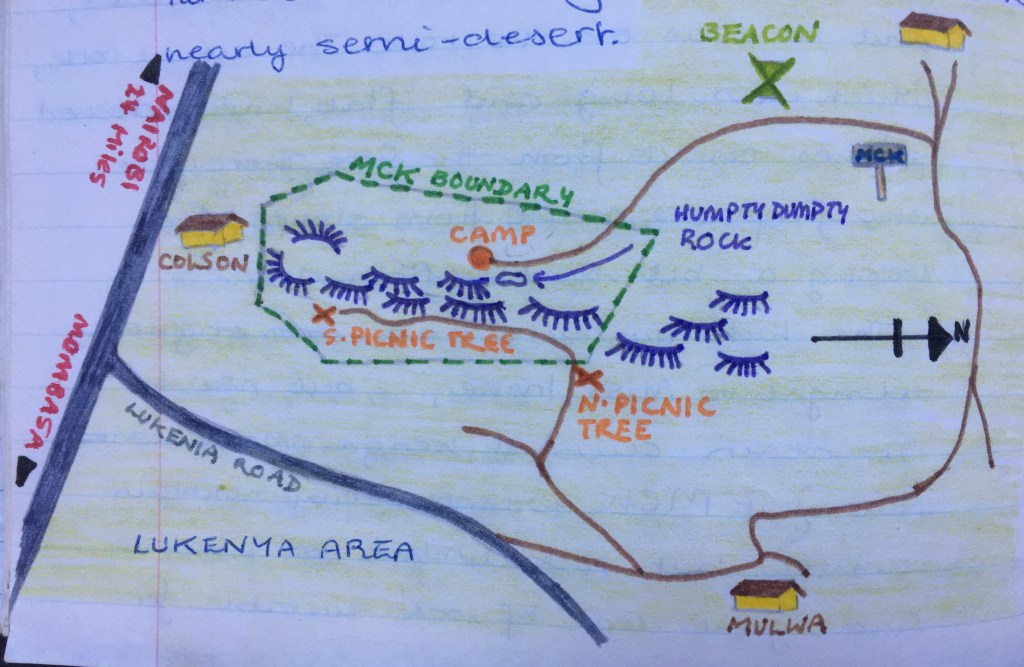 nearly semi-desert.
BEACON
NAIROBI
24 Miles
MCK
MCK BOUNDARY
HUMPTY DUMPTY
ROCK
CAMP
COLSON
N
S. PICNIC TREE
N. PICNIC
TREE
MOMBASA
LUKENIA ROAD
LUKENYA AREA
MULWA